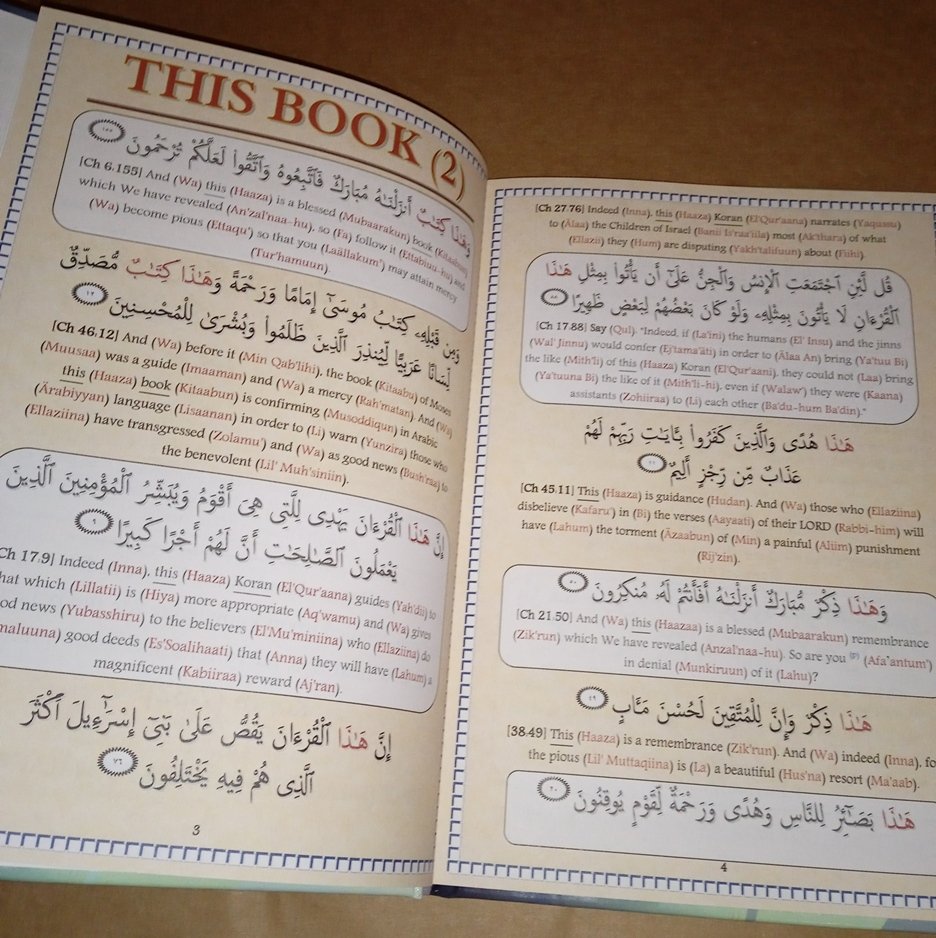 THIS BOOK (2)
وَهَٰذَا كِتَٰبٌ أَنزَلْنَٰهُ مُبَارَكٌ فَٱتَّبِعُوهُ وَٱتَّقُوا۟ لَعَلَّكُمْ تُرْحَمُونَ ١٥٥
[Ch 6.155] And (Wa) this (Haaza) is a blessed (Mubaarakun) book (Kitaabun)
which We have revealed (An'zal'naa-hu), so (Fa) follow it (Ettabiuu-hu) and
(Wa) become pious (Ettaqu') so that you (Laällakum') may attain mercy
(Tur'hamuun).
وَمِن قَبْلِهِۦ كِتَٰبُ مُوسَىٰٓ إِمَامًا وَرَحْمَةً وَهَٰذَا كِتَٰبٌ مُّصَدِّقٌ
لِّسَانًا عَرَبِيًّا لِّيُنذِرَ ٱلَّذِينَ ظَلَمُوا۟ وَبُشْرَىٰ لِلْمُحْسِنِينَ ١٢
[Ch 46.12] And (Wa) before it (Min Qab'lihi), the book (Kitaabu) of Moses
(Muusaa) was a guide (Imaaman) and (Wa) a mercy (Rah'matan). And (Wa)
this (Haaza) book (Kitaabun) is confirming (Musoddiqun) in Arabic
(Ärabiyyan) language (Lisaanan) in order to (Li) warn (Yunzira) those who
(Ellaziina) have transgressed (Zolamu') and (Wa) as good news (Bush'raa) to
the benevolent (Lil' Muh'siniin).
إِنَّ هَٰذَا ٱلْقُرْءَانَ يَهْدِى لِلَّتِى هِىَ أَقْوَمُ وَيُبَشِّرُ ٱلْمُؤْمِنِينَ ٱلَّذِينَ
يَعْمَلُونَ ٱلصَّٰلِحَٰتِ أَنَّ لَهُمْ أَجْرًا كَبِيرًا ٩
Ch 17.9] Indeed (Inna), this (Haaza) Koran (El'Qur'aana) guides (Yah'dii) to
hat which (Lillatii) is (Hiya) more appropriate (Aq'wamu) and (Wa) gives
od news (Yubasshiru) to the believers (El'Mu'miniina) who (Ellaziina) do
maluuna) good deeds (Es'Soalihaati) that (Anna) they will have (Lahum) a
magnificent (Kabiiraa) reward (Aj'ran).
إِنَّ هَٰذَا ٱلْقُرْءَانَ يَقُصُّ عَلَىٰ بَنِىٓ إِسْرَٰٓءِيلَ أَكْثَرَ
ٱلَّذِى هُمْ فِيهِ يَخْتَلِفُونَ ٧٦
3
[Ch 27.76] Indeed (Inna), this (Haaza) Koran (El'Qur'aana) narrates (Yaqussu)
to (Älaa) the Children of Israel (Banii Is'raa'iila) most (Ak'thara) of what
(Ellazii) they (Hum) are disputing (Yakh'talifuun) about (Fiihi).
قُل لَّئِنِ ٱجْتَمَعَتِ ٱلْإِنسُ وَٱلْجِنُّ عَلَىٰٓ أَن يَأْتُوا۟ بِمِثْلِ هَٰذَا
ٱلْقُرْءَانِ لَا يَأْتُونَ بِمِثْلِهِۦ وَلَوْ كَانَ بَعْضُهُمْ لِبَعْضٍ ظَهِيرًا ٨٨
[Ch 17.88] Say (Qul), "Indeed, if (La'ini) the humans (El' Insu) and the jinns
(Wal' Jinnu) would confer (Ej'tama'äti) in order to (Älaa An) bring (Ya'tuu Bi)
the like (Mith'li) of this (Haaza) Koran (El'Qur'aani), they could not (Laa) bring
(Ya'tuuna Bi) the like of it (Mith'li-hi), even if (Walaw') they were (Kaana)
assistants (Zohiiraa) to (Li) each other (Ba'du-hum Ba'din)."
هَٰذَا هُدًى وَٱلَّذِينَ كَفَرُوا۟ بِـَٔايَٰتِ رَبِّهِمْ لَهُمْ
عَذَابٌ مِّن رِّجْزٍ أَلِيمٌ ١١
[Ch 45.11] This (Haaza) is guidance (Hudan). And (Wa) those who (Ellaziina)
disbelieve (Kafaru') in (Bi) the verses (Aayaati) of their LORD (Rabbi-him) will
have (Lahum) the torment (Äzaabun) of (Min) a painful (Aliim) punishment
(Rij'zin).
وَهَٰذَا ذِكْرٌ مُّبَارَكٌ أَنزَلْنَٰهُ أَفَأَنتُمْ لَهُۥ مُنكِرُونَ ٥٠
[Ch 21.50] And (Wa) this (Haazaa) is a blessed (Mubaarakun) remembrance
(Zik'run) which We have revealed (Anzal'naa-hu). So are you (Afa'antum')
in denial (Munkiruun) of it (Lahu)?
هَٰذَا ذِكْرٌ وَإِنَّ لِلْمُتَّقِينَ لَحُسْنَ مَـَٔابٍ ٤٩
[38.49] This (Haaza) is a remembrance (Zik'run). And (Wa) indeed (Inna), fo
the pious (Lil' Muttaqiina) is (La) a beautiful (Hus'na) resort (Ma'aab).
هَٰذَا بَصَٰٓئِرُ لِلنَّاسِ وَهُدًى وَرَحْمَةٌ لِّقَوْمٍ يُوقِنُونَ ٢٠
4